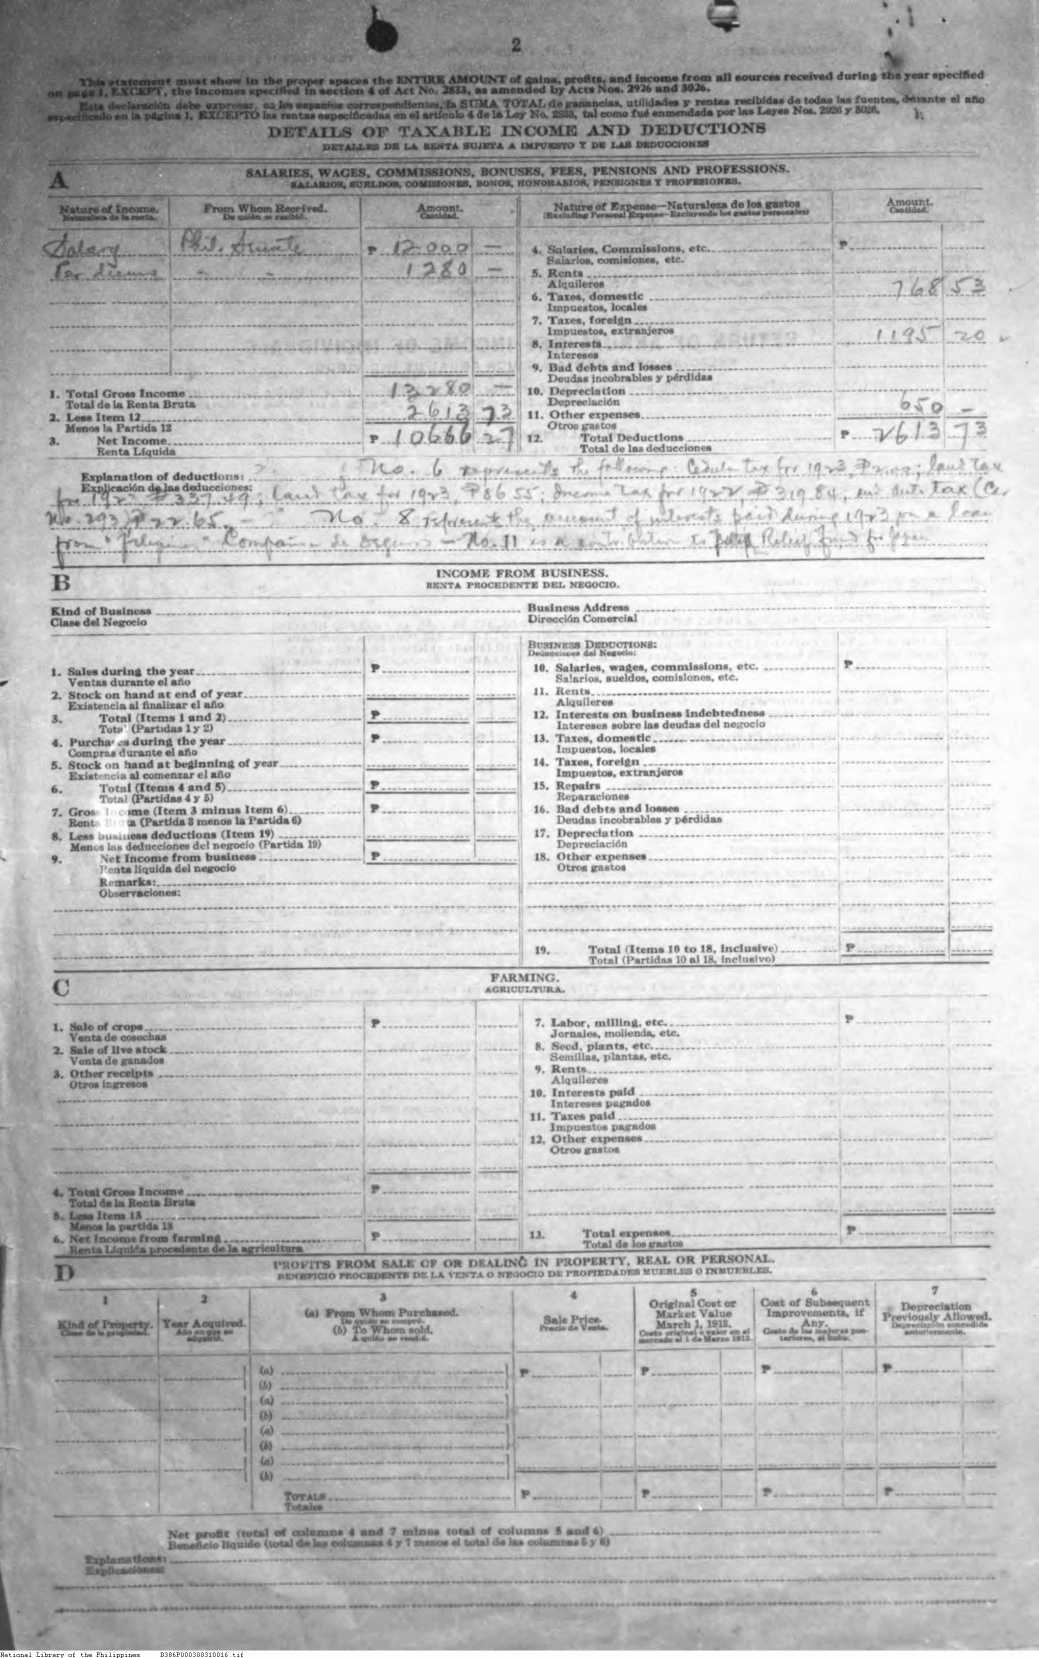 2
This statement must show in the proper spaces the ENTIRE AMOUNT of gains, profits, and income from all sources received during the year specified
on page 1, EXCEPT, the incomes specified in section 4 of Act No. 2833, as amended by Acts Nos. 2926 and 3026.
Esta declaración debe expresar, en los espacios correspondientes, la SUMA TOTAL de ganancias, utilidades y rentas recibidas de todas las fuentes, durante el año
especificado en la página 1, EXCEPTO las rentas especificadas en el artículo 4 de la Ley No. 2833, tal como fué enmendada por las Leyes Nos. 2926 y 3026.
DETAILS OF TAXABLE INCOME AND DEDUCTIONS
DETALLES DE LA RENTA SUJETA A IMPUESTO Y DE LAS DEDUCCIONES
A
SALARIES, WAGES, COMMISSIONS, BONUSES, FEES, PENSIONS AND PROFESSIONS.
SALARIOS, SUELDOS, COMISIONES, BONOS, HONORARIOS, PENSIONES Y PROFESIONES.
Nature of Income. From Whom Received. Amount. Nature of Expense—Naturaleza de los gastos Amount.
Naturaleza de la renta. De quién se recibió. Cantidad. (Excluding Personal Expense—Excluyendo los gastos personales) Cantidad.
Salary Phil. Senate ₱ 12000 —
Per diems " " 1280 —
4. Salaries, Commissions, etc. ₱
Salarios, comisiones, etc.
5. Rents
Alquileres
6. Taxes, domestic 768 53
Impuestos, locales
7. Taxes, foreign
Impuestos, extranjeros
8. Interests 1195 20
Intereses
9. Bad debts and losses
Deudas incobrables y pérdidas
1. Total Gross Income 13280 —
Total de la Renta Bruta
2. Less Item 12 2613 73
Menos la Partida 12
3. Net Income ₱ 10666 27
Renta Líquida
10. Depreciation
Depreciación
11. Other expenses 650 —
Otros gastos
12. Total Deductions ₱ 2613 73
Total de las deducciones
Explanation of deductions: No. 6 represents the following: Cedula tax for 1923 ₱2.00; land tax
Explicación de las deducciones:
for 192 ₱337.49; land tax for 1923, ₱86.55; Income tax for 1922 ₱319.84; and auto tax (Car
No. 293) ₱22.65. — No. 8 represents the amount of interests paid during 1923 on a loan
from "Filipinas" Compañia de Seguros — No. 11 is a contribution to Relief Fund for Japan
B
INCOME FROM BUSINESS.
RENTA PROCEDENTE DEL NEGOCIO.
Kind of Business
Clase del Negocio
Business Address
Dirección Comercial
1. Sales during the year ₱
Ventas durante el año
2. Stock on hand at end of year
Existencia al finalizar el año
3. Total (Items 1 and 2) ₱
Total (Partidas 1 y 2)
4. Purchases during the year ₱
Compras durante el año
5. Stock on hand at beginning of year
Existencia al comenzar el año
6. Total (Items 4 and 5) ₱
Total (Partidas 4 y 5)
7. Gross Income (Item 3 minus Item 6) ₱
Renta Bruta (Partida 3 menos la Partida 6)
8. Less business deductions (Item 19)
Menos las deducciones del negocio (Partida 19)
9. Net Income from business ₱
Renta líquida del negocio
Remarks:
Observaciones:
BUSINESS DEDUCTIONS:
Deducciones del Negocio:
10. Salaries, wages, commissions, etc. ₱
Salarios, sueldos, comisiones, etc.
11. Rents
Alquileres
12. Interests on business indebtedness
Intereses sobre las deudas del negocio
13. Taxes, domestic
Impuestos, locales
14. Taxes, foreign
Impuestos, extranjeros
15. Repairs
Reparaciones
16. Bad debts and losses
Deudas incobrables y pérdidas
17. Depreciation
Depreciación
18. Other expenses
Otros gastos
19. Total (Items 10 to 18, inclusive) ₱
Total (Partidas 10 al 18, inclusivo)
C
FARMING.
AGRICULTURA.
1. Sale of crops ₱
Venta de cosechas
2. Sale of live stock
Venta de ganados
3. Other receipts
Otros ingresos
4. Total Gross Income ₱
Total de la Renta Bruta
5. Less Item 13
Menos la partida 13
6. Net Income from farming ₱
Renta Líquida procedente de la agricultura
7. Labor, milling, etc. ₱
Jornales, molienda, etc.
8. Seed, plants, etc.
Semillas, plantas, etc.
9. Rents
Alquileres
10. Interests paid
Intereses pagados
11. Taxes paid
Impuestos pagados
12. Other expenses
Otros gastos
13. Total expenses ₱
Total de los gastos
D
PROFITS FROM SALE OF OR DEALING IN PROPERTY, REAL OR PERSONAL.
BENEFICIO PROCEDENTE DE LA VENTA O NEGOCIO DE PROPIEDADES MUEBLES O INMUEBLES.
1
Kind of Property.
Clase de la propiedad.
2
Year Acquired.
Año en que se
adquirió.
3
(a) From Whom Purchased.
De quién se compró.
(b) To Whom sold.
A quién se vendió.
4
Sale Price.
Precio de Venta.
5
Original Cost or
Market Value
March 1, 1913.
Costo original o valor en el
mercado el 1 de Marzo 1913.
6
Cost of Subsequent
Improvements, if
Any.
Costo de las mejoras pos-
teriores, si hubo.
7
Depreciation
Previously Allowed.
Depreciación concedida
anteriormente.
(a) ₱ ₱ ₱ ₱
(b)
(a)
(b)
(a)
(b)
(a)
(b)
TOTALS ₱ ₱ ₱ ₱
Totales
Net profit (total of columns 4 and 7 minus total of columns 5 and 6)
Beneficio líquido (total de las columnas 4 y 7 menos el total de las columnas 5 y 6)
Explanations:
Explicaciones:
National Library of the Philippines D386P000380310016.tif